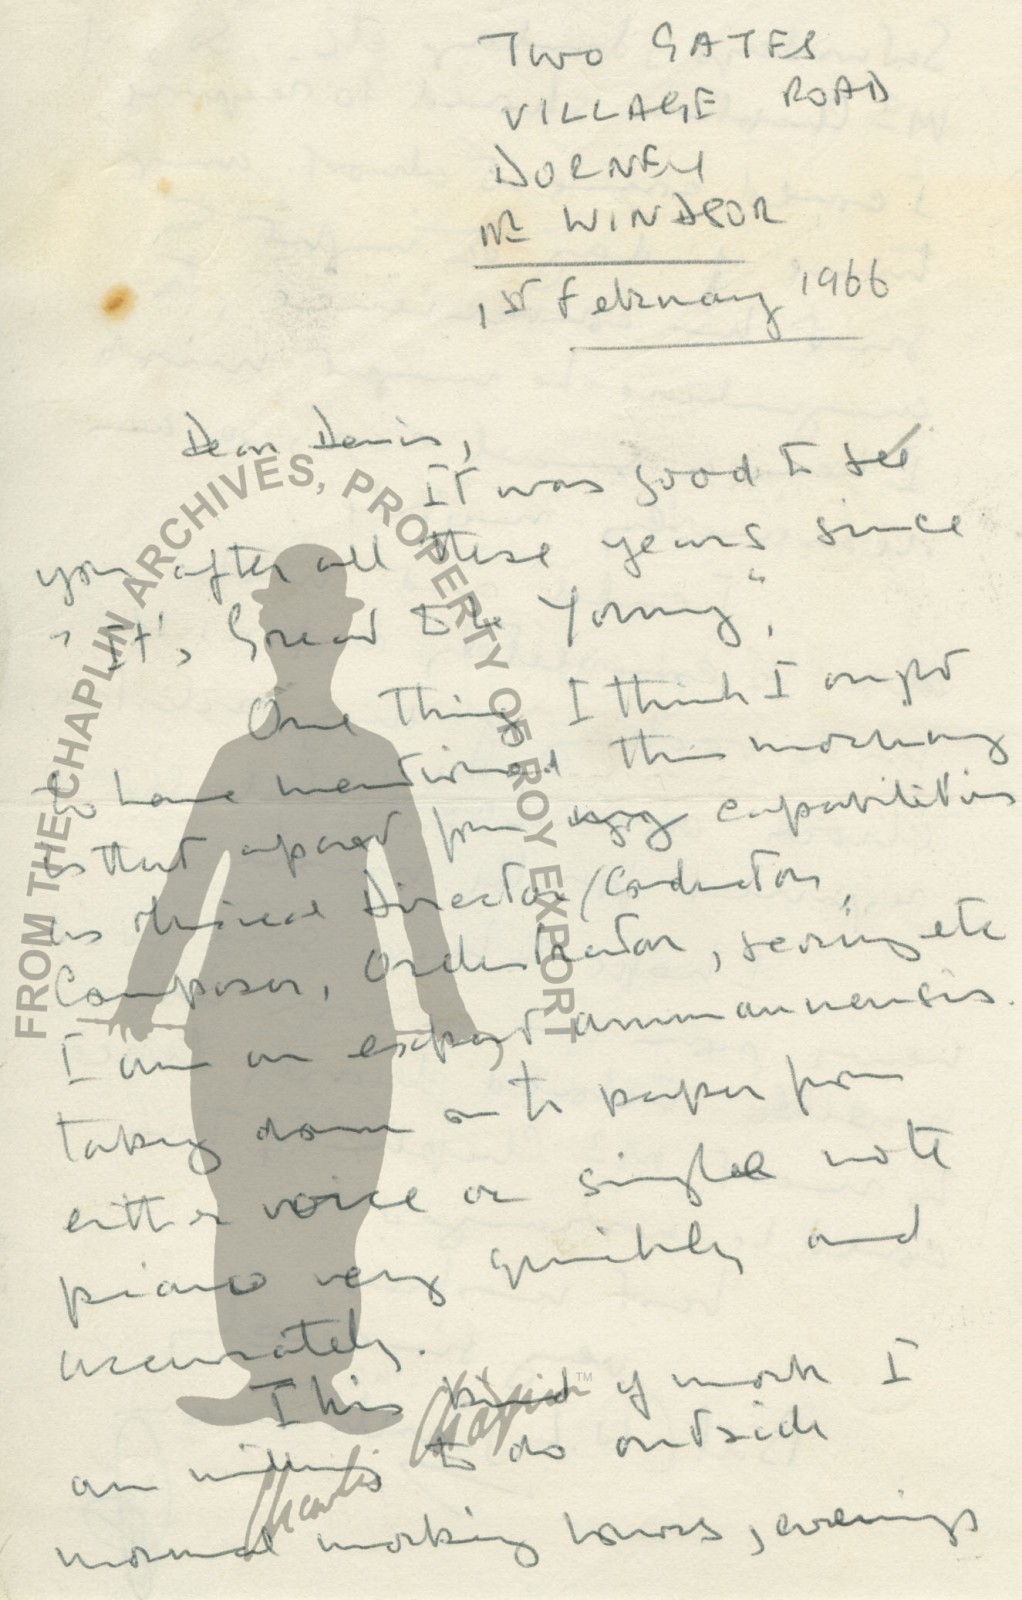 TWO GATES
VILLAGE ROAD
DORNEY
NR WINDSOR
1st February 1966
Dear Denis,
It was good to see
you after all these years since
"It's Great to be Young",
One thing I think I ought
to have mentioned this morning
is that apart from my capabilities
as Musical Director/Conductor,
Composer, Orchestrator, scoring etc
I am an expert ammanuensis.
taking down on to paper from
either voice or single note
piano very quickly and
accurately.
This kind of work I
am willing to do outside
normal working hours, evenings
FROM THE CHAPLIN ARCHIVES, PROPERTY OF ROY EXPORT
Charlie Chaplin TM